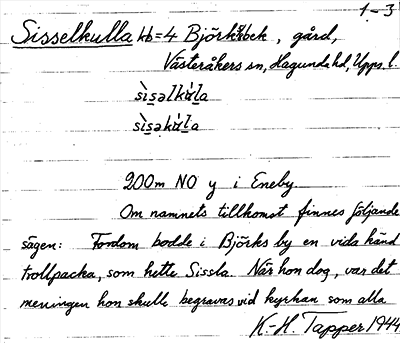 1-3
Sisselkulla kb=4 Björksbek, gård,
Västeråkers sn, Hagunda hd, Upps. l.
sìsəlkúla
sìsəkúla
200m NO y i Eneby
Om namnets tillkomst finnes följande
sägen: Fordom bodde i Björks by en vida känd
trollpacka, som hette Sissla. När hon dog, var det
meningen hon skulle begravas vid kyrkan som alla
K.-H. Tapper 1944